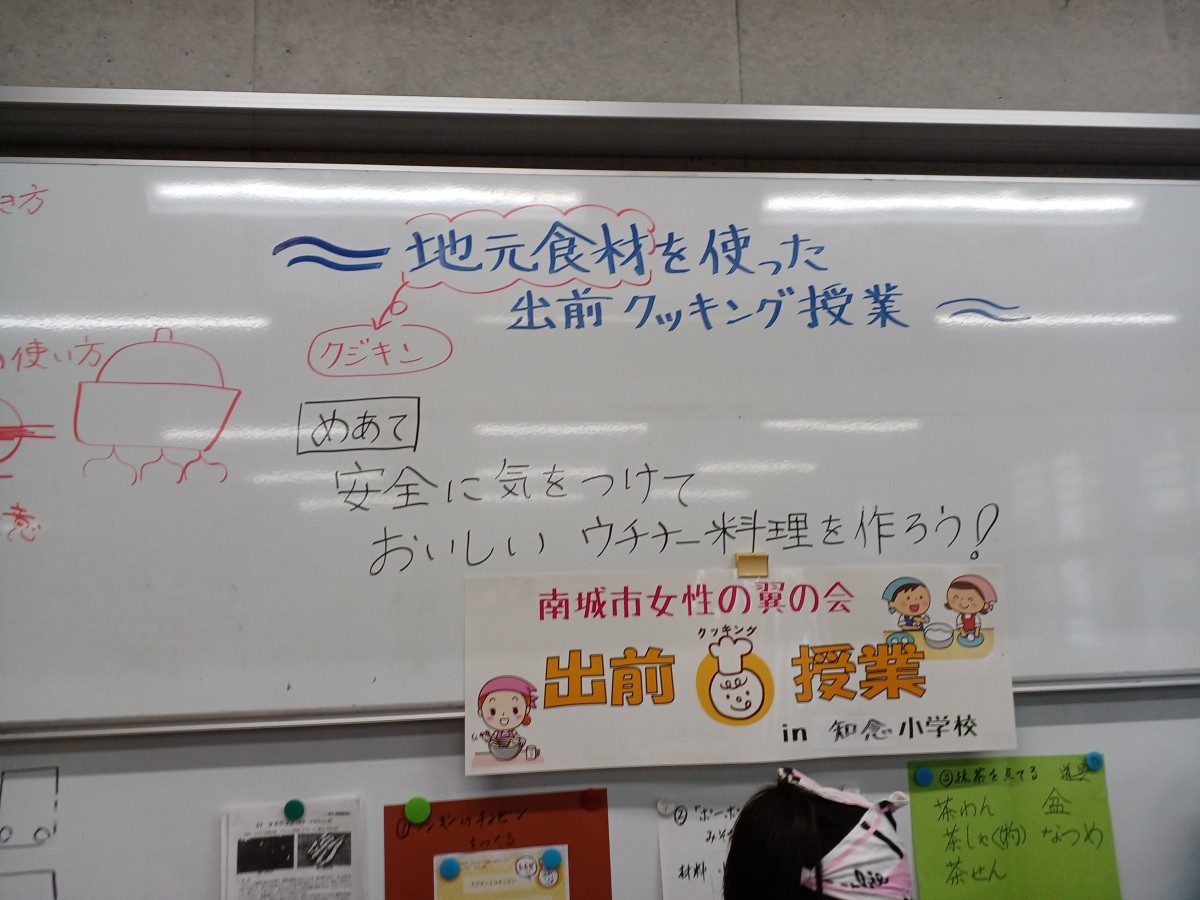 き方
地元食材を使った
出前クッキング授業
の使い方
クジキン
めあて
安全に気をつけて
おいしい ウチナー料理を作ろう!
意
南城市女性の翼の会
クッキング
出前 授業
in 知念小学校
②
材料
③抹茶を点てる 道具
茶わん 盆
茶しゃく(杓) なつめ
茶せん
①